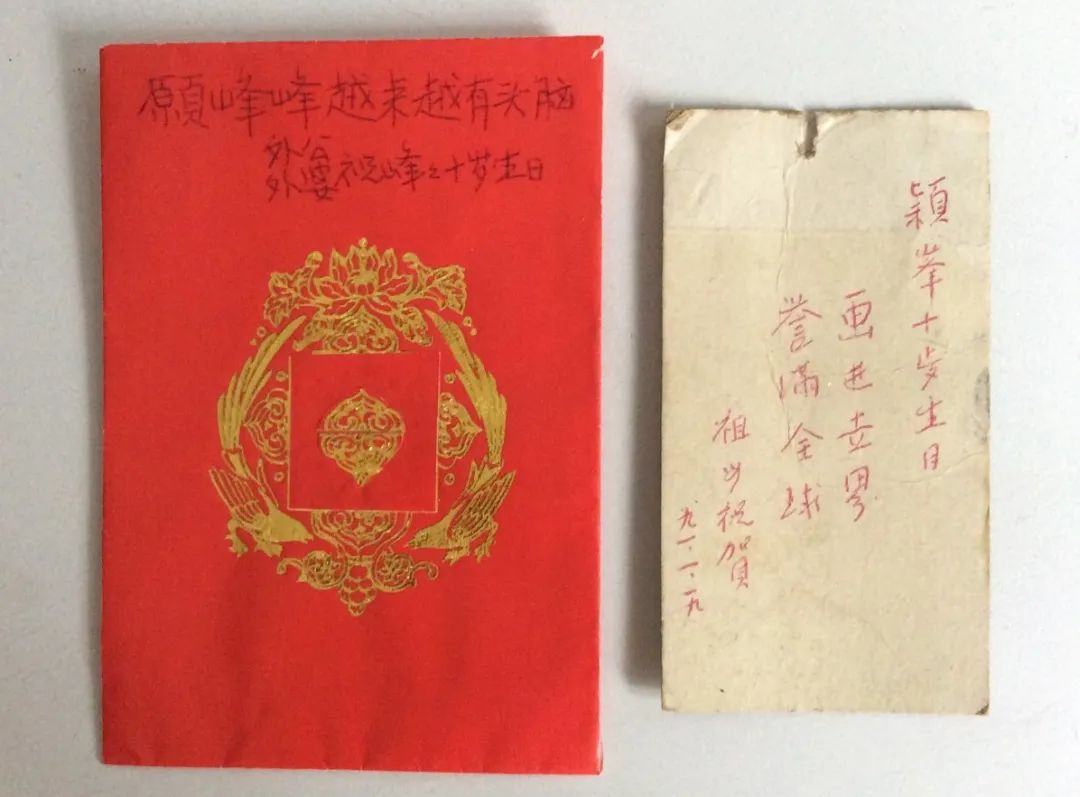 願峰峰越来越有头脑
外公
外婆祝峰々十岁生日
穎峯十岁生日
画进世界
誉满全球
祖母祝賀
九一.一.一九